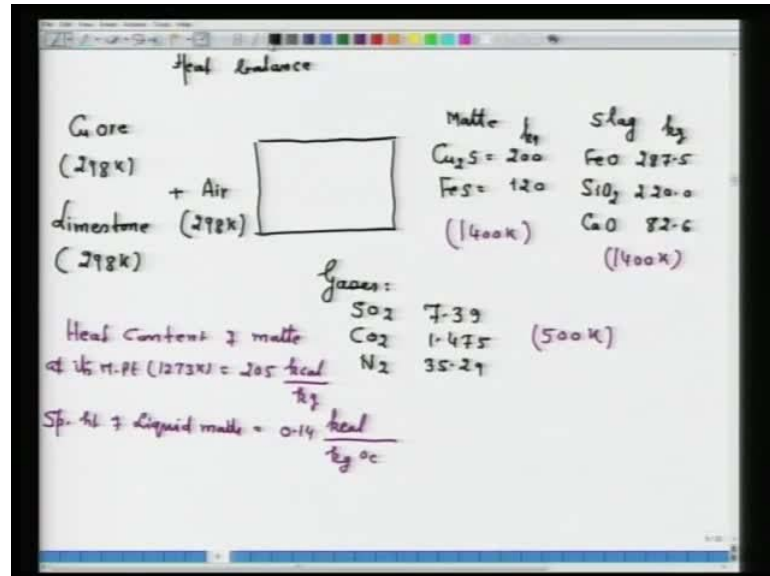 Heat balance
Cu ore
(298K)
+ Air
(298K)
Limestone
(298K)
Matte kg
Cu2S = 200
FeS = 120
(1400K)
Slag kg
FeO 287.5
SiO2 220.0
CaO 82.6
(1400K)
Gases:
SO2 7.39
CO2 1.475
N2 35.29
(500K)
Heat Content of matte
at its M.Pt (1273K) = 205 kcal/kg
Sp. ht of Liquid matte = 0.14 kcal/kg °C